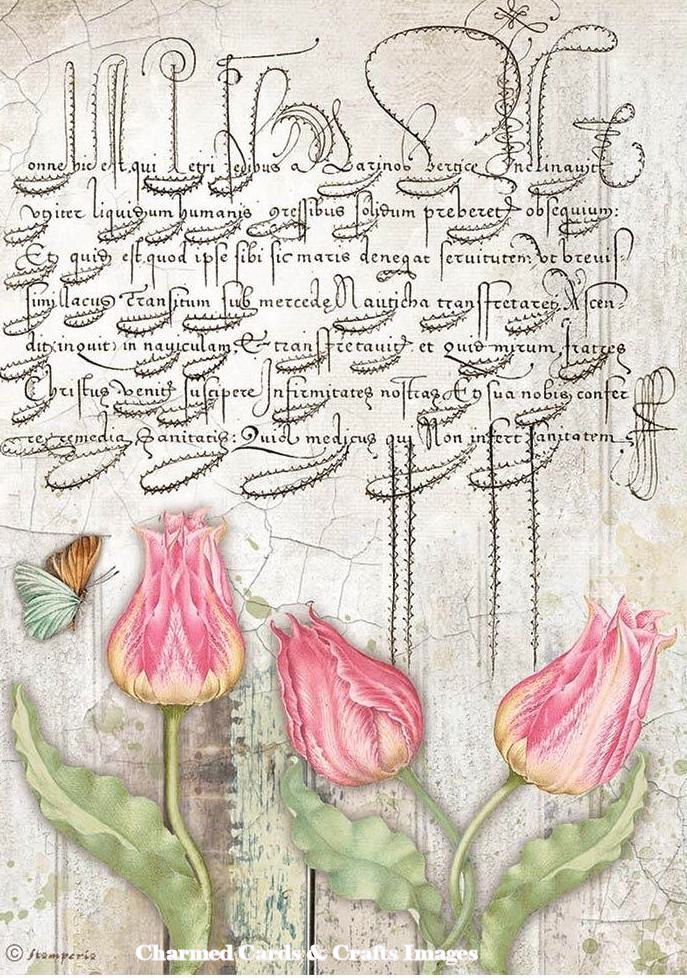 onne hic est qui Petri pedibus a Marinos vertice Inclinavit
vtiter liquidum humanis gressibus solidum preberet obsequium:
Et quid est quod ipse sibi sic maris denegat seruitutem. Vt breuis
simi llacus Transitum sub mercede Nauticha transfretaret Ascen-
dit inquit in nauiculam, & transfretauit et Quid mirum, fratres
Christus venit suscipere Infirmitates nostras Et sua nobis confer
re remedia, Sanitatis: Quid medicus qui Non infert sanitatem
© Stamperia
Charmed Cards & Crafts Images